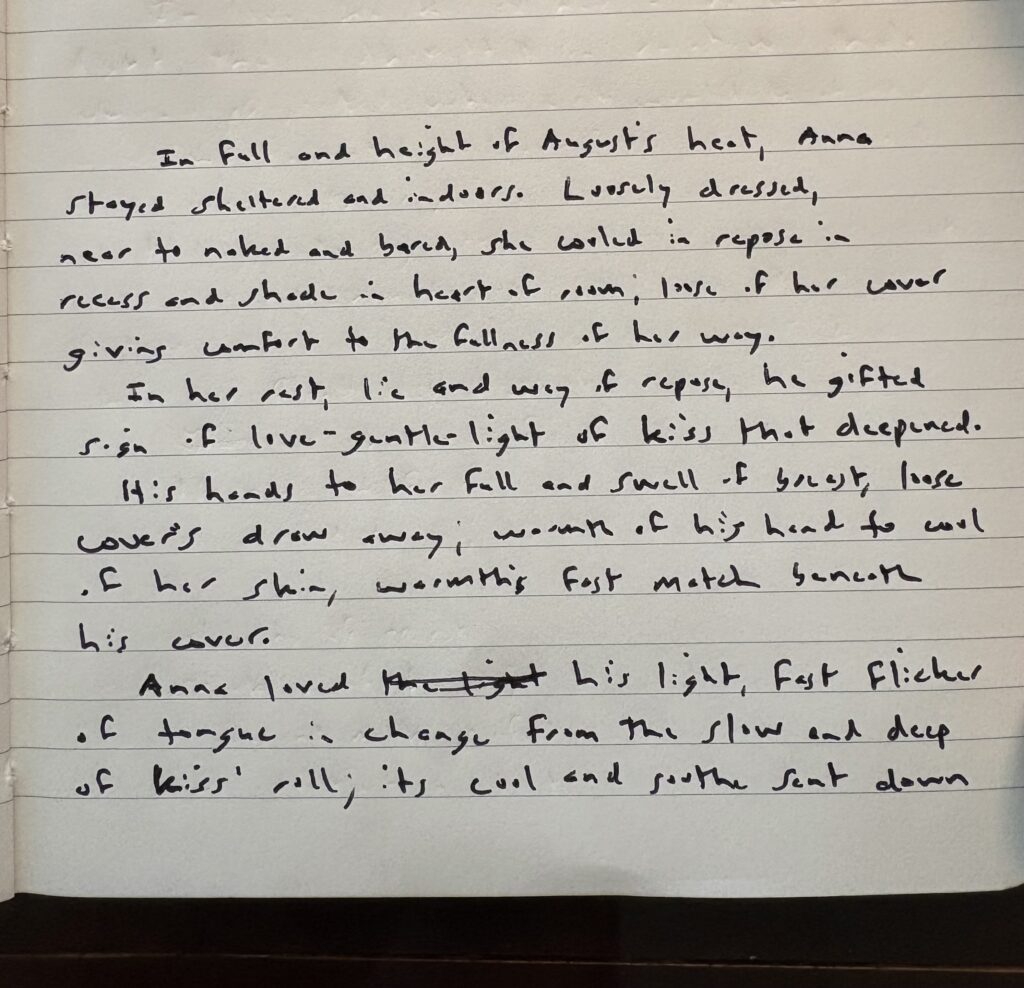 In full and height of August's heat, Anna
stayed sheltered and indoors. Loosely dressed,
near to naked and bared, she cooled in repose in
recess and shade in heart of room; loose of her cover
giving comfort to the fullness of her way.
In her rest, lie and way of repose, he gifted
sign of love-gentle-light of kiss that deepened.
His hands to her full and swell of breast, loose
cover's draw away; warmth of his hand to cool
of her skin, warmth's fast match beneath
his cover.
Anna loved the light his light, fast flicker
of tongue in change from the slow and deep
of kiss' roll; its cool and soothe sent down